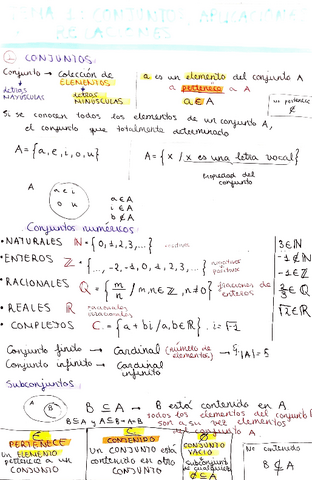 TEMA 1: CONJUNTOS, APLICACIONES
RELACIONES
① CONJUNTOS:
Conjunto → Colección de ELEMENTOS
letras MAYÚSCULAS
letras MINÚSCULAS
a es un elemento del conjunto A
a pertenece a A
a ∈ A
no pertenece ∉
Si se conocen todos los elementos de un conjunto A,
el conjunto que totalmente determinado
A = {a, e, i, o, u}
A = {x / x es una letra vocal}
propiedad del conjunto
A
a e i
o u
a ∈ A
i ∈ A
b ∉ A
Conjuntos numéricos:
• NATURALES ℕ = {0, 1, 2, 3, ...}
• ENTEROS ℤ = {..., -2, -1, 0, 1, 2, 3, ...} negativos positivos
• RACIONALES ℚ = {m/n / m, n ∈ ℤ, n ≠ 0} fracciones de enteros
• REALES ℝ racionales irracionales
• COMPLEJOS ℂ = {a + bi / a, b ∈ ℝ}. i = √-1
3 ∈ ℕ
-1 ∉ ℕ
-1 ∈ ℤ
∈ ℚ
√2 ∈ ℝ
Conjunto finito → Cardinal (número de elementos) → |A| = 5
Conjunto infinito → Cardinal infinito
Subconjuntos
A
B
B ⊆ A → B está contenido en A
B ⊆ A y A ⊆ B → A = B
todos los elementos del conjunto B
son a su vez elementos
del conjunto A.
∈
PERTENECE
un ELEMENTO
pertenece a un
CONJUNTO
⊆
CONTENIDO
un CONJUNTO está
contenido en otro
CONJUNTO
∅
CONJUNTO
VACIO
subconjunto
de cualquier
∅ ⊆ A
No contenido
B ⊈ A